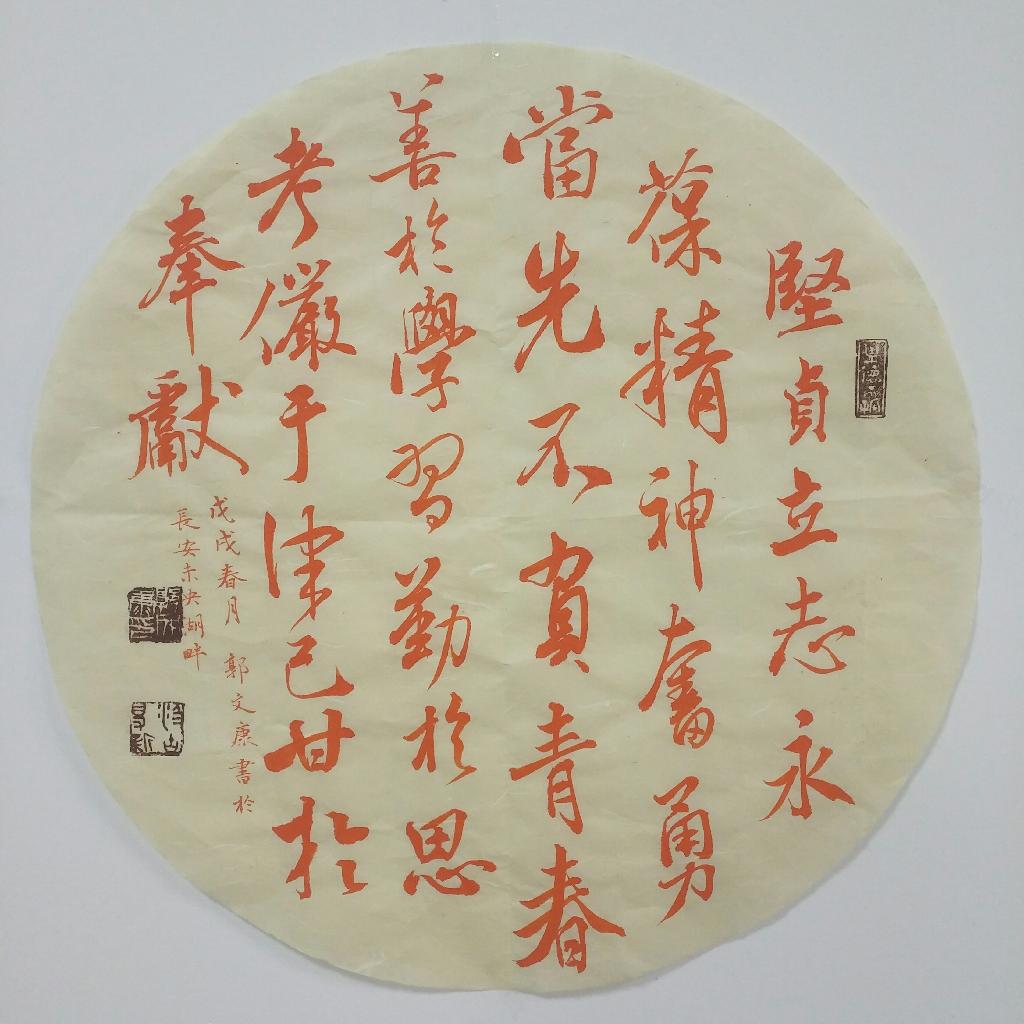 堅貞立志永
葆精神奮勇
當先不負青春
善於學習勤於思
考嚴于律己甘於
奉獻
戊戌春月 郭文康書於
長安未央湖畔